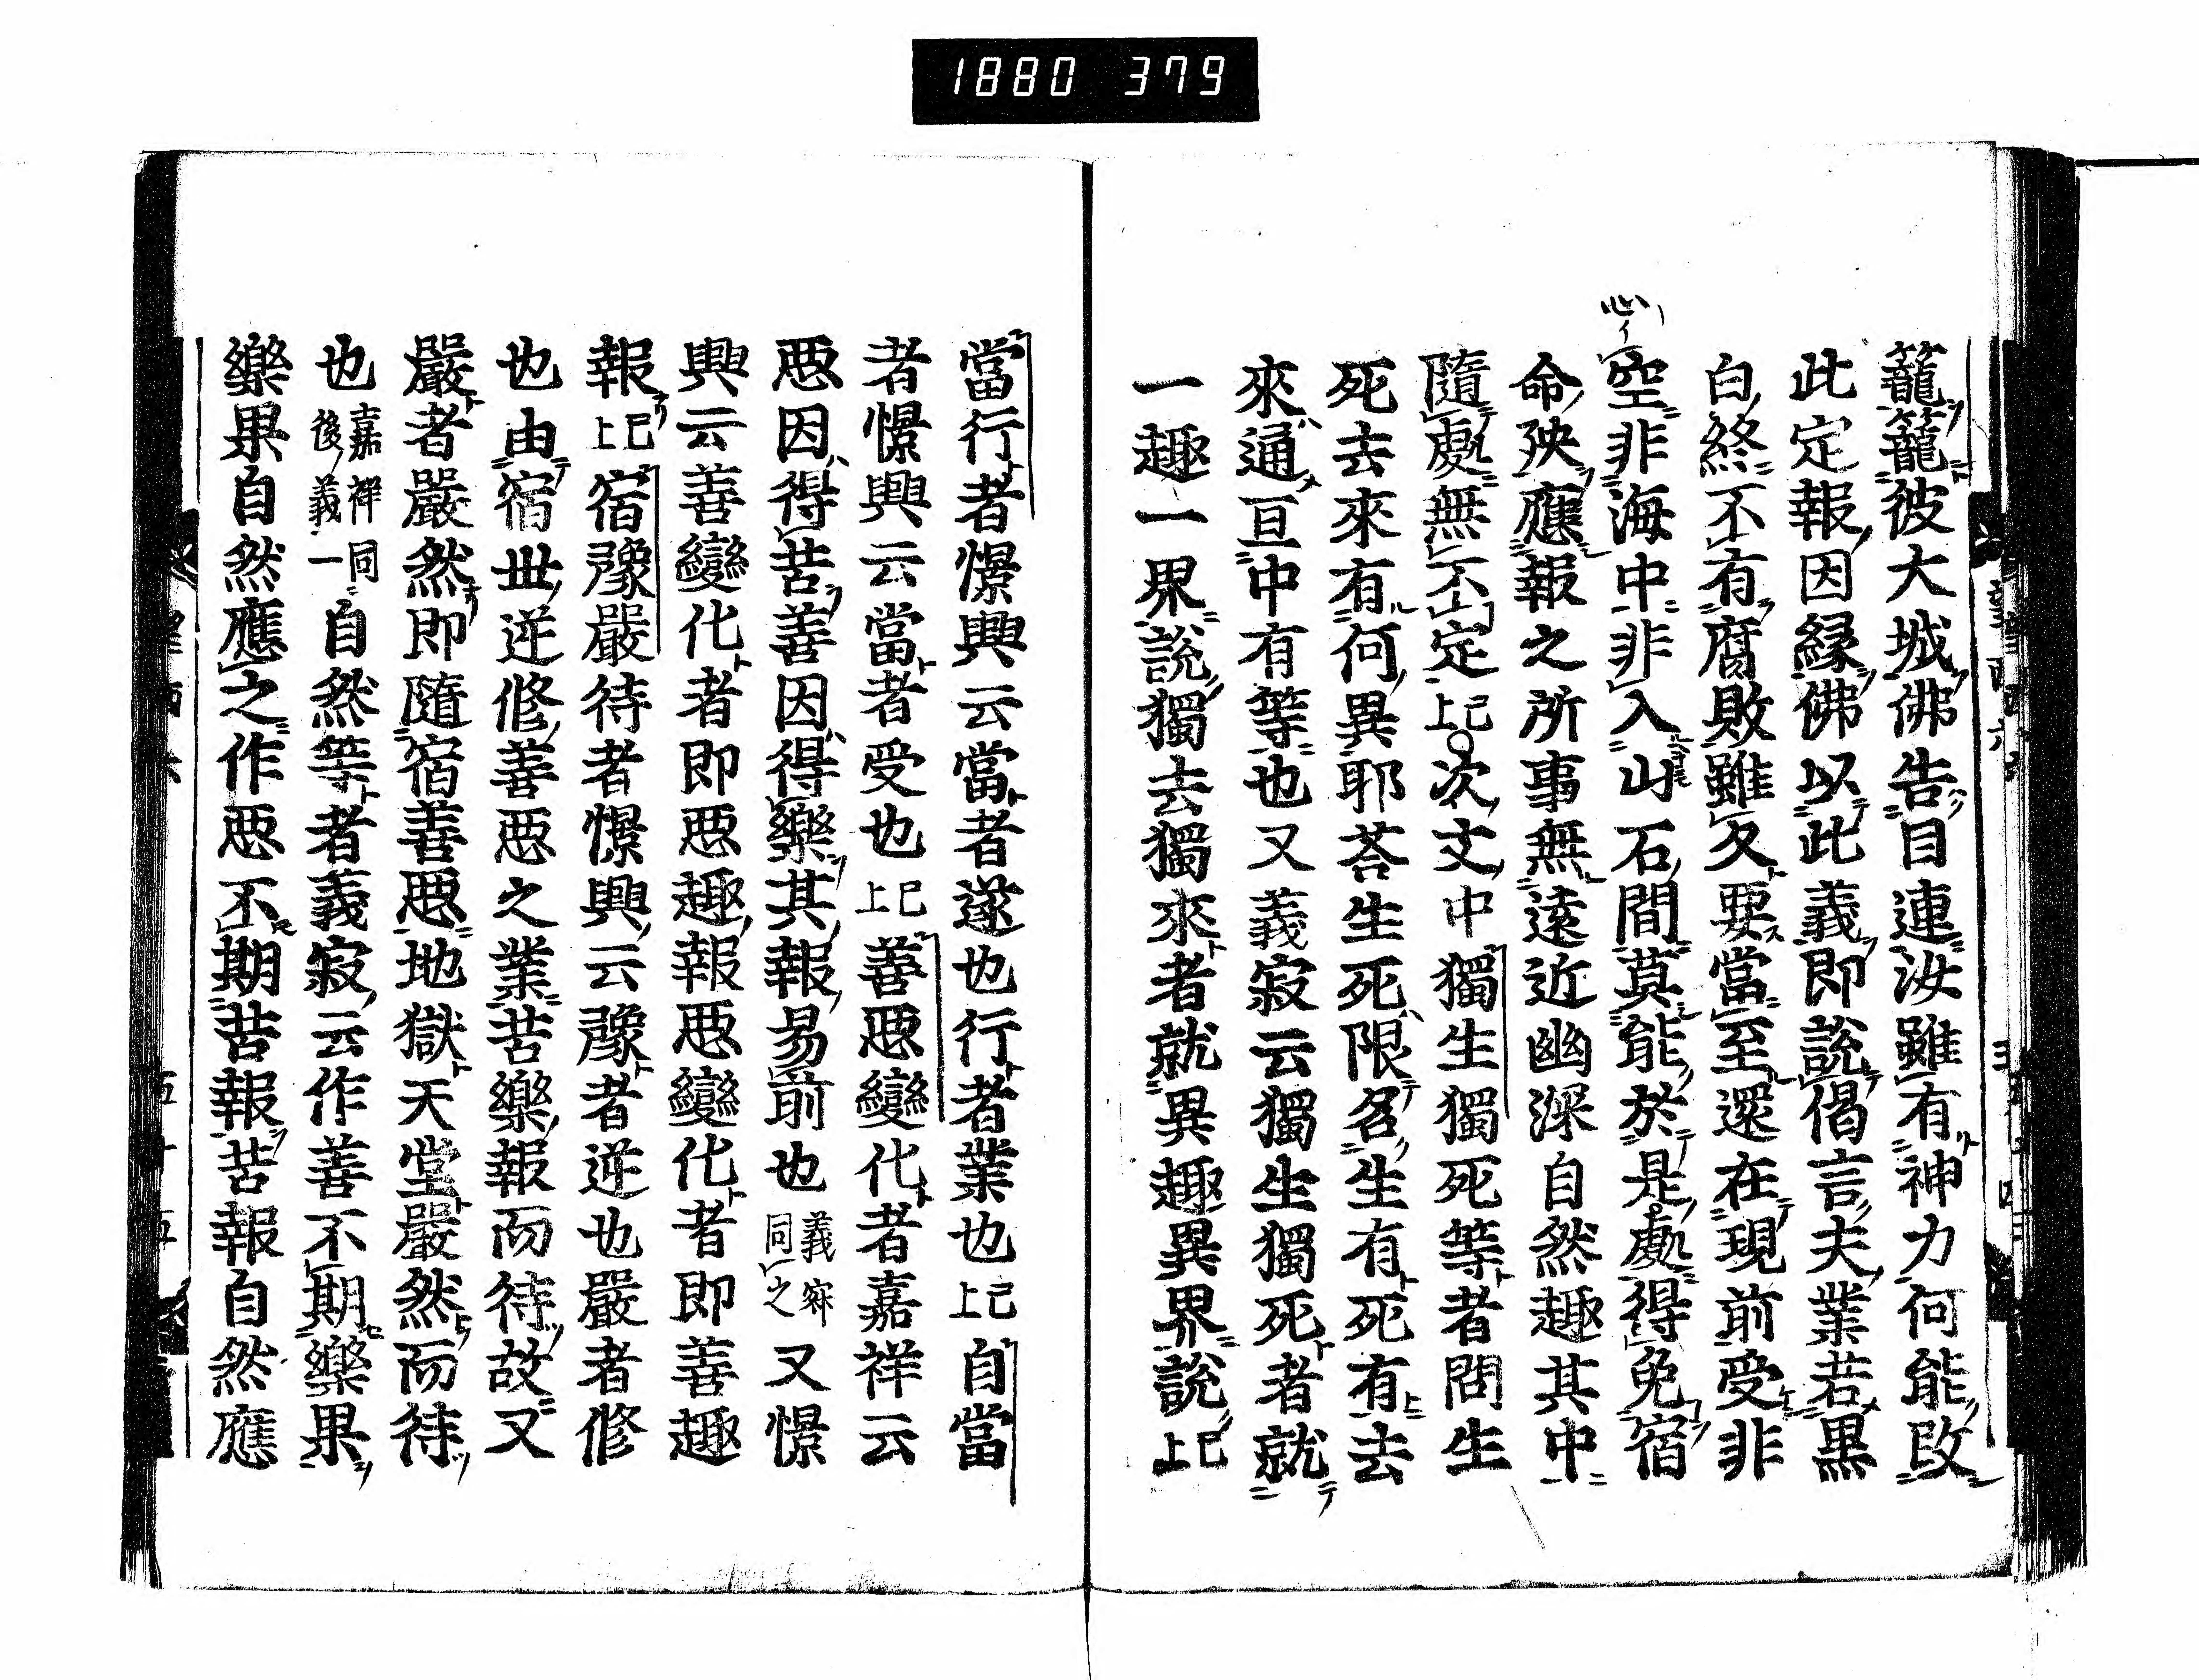 1880 379
籠籠彼大城佛告目連汝雖有神力何能改
此定報因縁佛以此義即説偈言夫業若黒
白終不有腐敗雖久要當至還在現前受非
空非海中非入山石間莫能於是處得免宿
命殃應報之所事無遠近幽深自然趣其中
隨處無不定已上次文中獨生獨死等者問生
死去來有何異耶荅生死限名生有死有去
來通亘中有等也又義寂云獨生獨死者就
一趣一界説獨去獨來者就異趣異界説已上
當行者憬興云當者遂也行者業也已上自當
者憬興云當者受也已上善悪變化者嘉祥云
悪因得苦善因得樂其報易前也義寂同之又憬
興云善變化者即悪趣報悪變化者即善趣
報已上宿豫嚴待者憬興云豫者逆也嚴者修
也由宿世逆修善悪之業苦樂報而待故又
嚴者嚴然即隨宿善悪地獄天堂嚴然而待
也嘉祥同後義一自然等者義寂云作善不期樂果
樂果自然應之作悪不期苦報苦報自然應